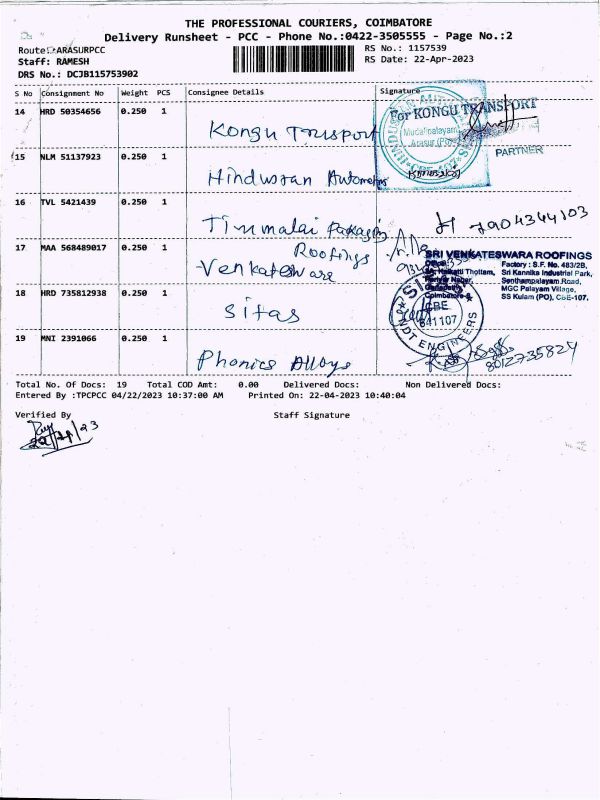 THE PROFESSIONAL COURIERS, COIMBATORE
Delivery Runsheet - PCC - Phone No.:0422-3505555 - Page No.:2
Route: ARASURPCC
RS No.: 1157539
Staff: RAMESH
RS Date: 22-Apr-2023
DRS No.: DCJB115753902
S No Consignment No Weight PCS Consignee Details Signature
14 HRD 50354656 0.250 1
Kongu Trusport
For KONGU TRANSPORT
Mudalipalayam
PARTNER
15 NLM 51137923 0.250 1
Hindusran Automotivs
16 TVL 5421439 0.250 1
Tirumalai Pakagin
7904344103
17 MAA 568489017 0.250 1
Roofings
Venkateswara
SRI VENKATESWARA ROOFINGS
Office:
Thottam,
Coimbatore
Factory : S.F. No. 483/2B,
Sri Kannika Industrial Park,
Senthampalayam Road,
MGC Palayam Village,
SS Kulam (PO), CBE-107.
18 HRD 735812938 0.250 1
Sitas
CBE
641107
NDT ENGINEERS
19 MNI 2391066 0.250 1
Phonics Alloys
8012735824
Total No. Of Docs: 19 Total COD Amt: 0.00 Delivered Docs: Non Delivered Docs:
Entered By :TPCPCC 04/22/2023 10:37:00 AM Printed On: 22-04-2023 10:40:04
Verified By Staff Signature